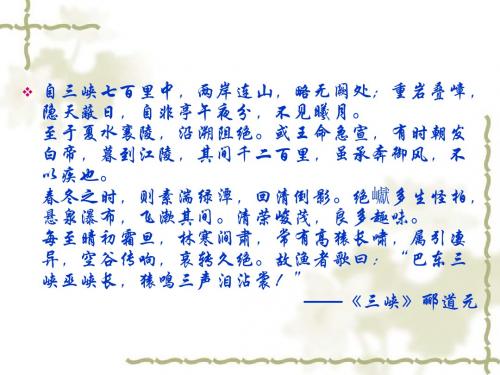 自三峡七百里中，两岸连山，略无阙处；重岩叠嶂，
隐天蔽日，自非亭午夜分，不见曦月。
至于夏水襄陵，沿溯阻绝。或王命急宣，有时朝发
白帝，暮到江陵，其间千二百里，虽乘奔御风，不
以疾也。
春冬之时，则素湍绿潭，回清倒影。绝巘多生怪柏，
悬泉瀑布，飞漱其间。清荣峻茂，良多趣味。
每至晴初霜旦，林寒涧肃，常有高猿长啸，属引凄
异，空谷传响，哀转久绝。故渔者歌曰：“巴东三
峡巫峡长，猿鸣三声泪沾裳！”
——《三峡》郦道元